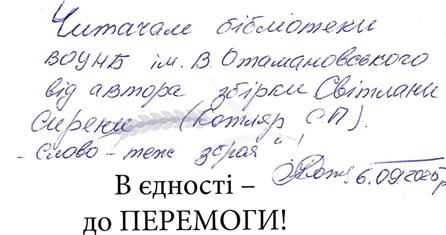 Читачам бібліотеки
ВОУНБ ім. В. Отамановського
від автора збірки Світлани
Сирени (Котляр С П).
- Слово - теж зброя"!
6.09.2025р
В єдності –
до ПЕРЕМОГИ!